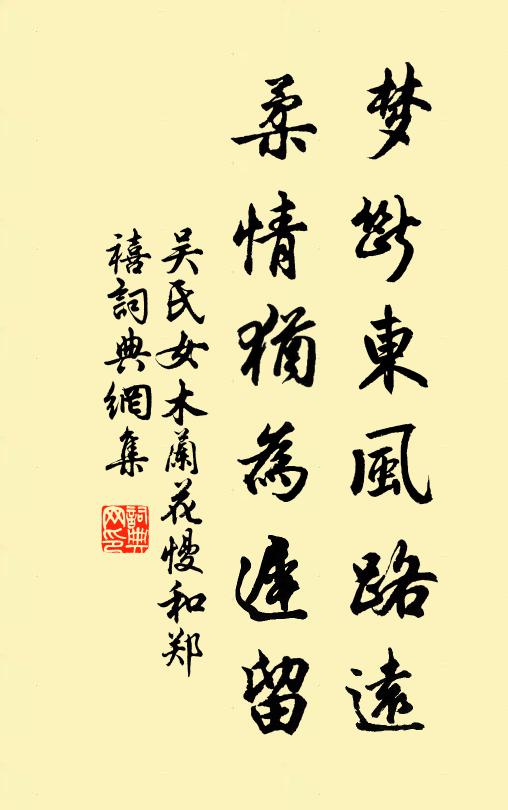 梦斷東風路遠
柔情猶為遲留
吴氏女木蘭花慢和郑
禧詞典網集
詞典
网印